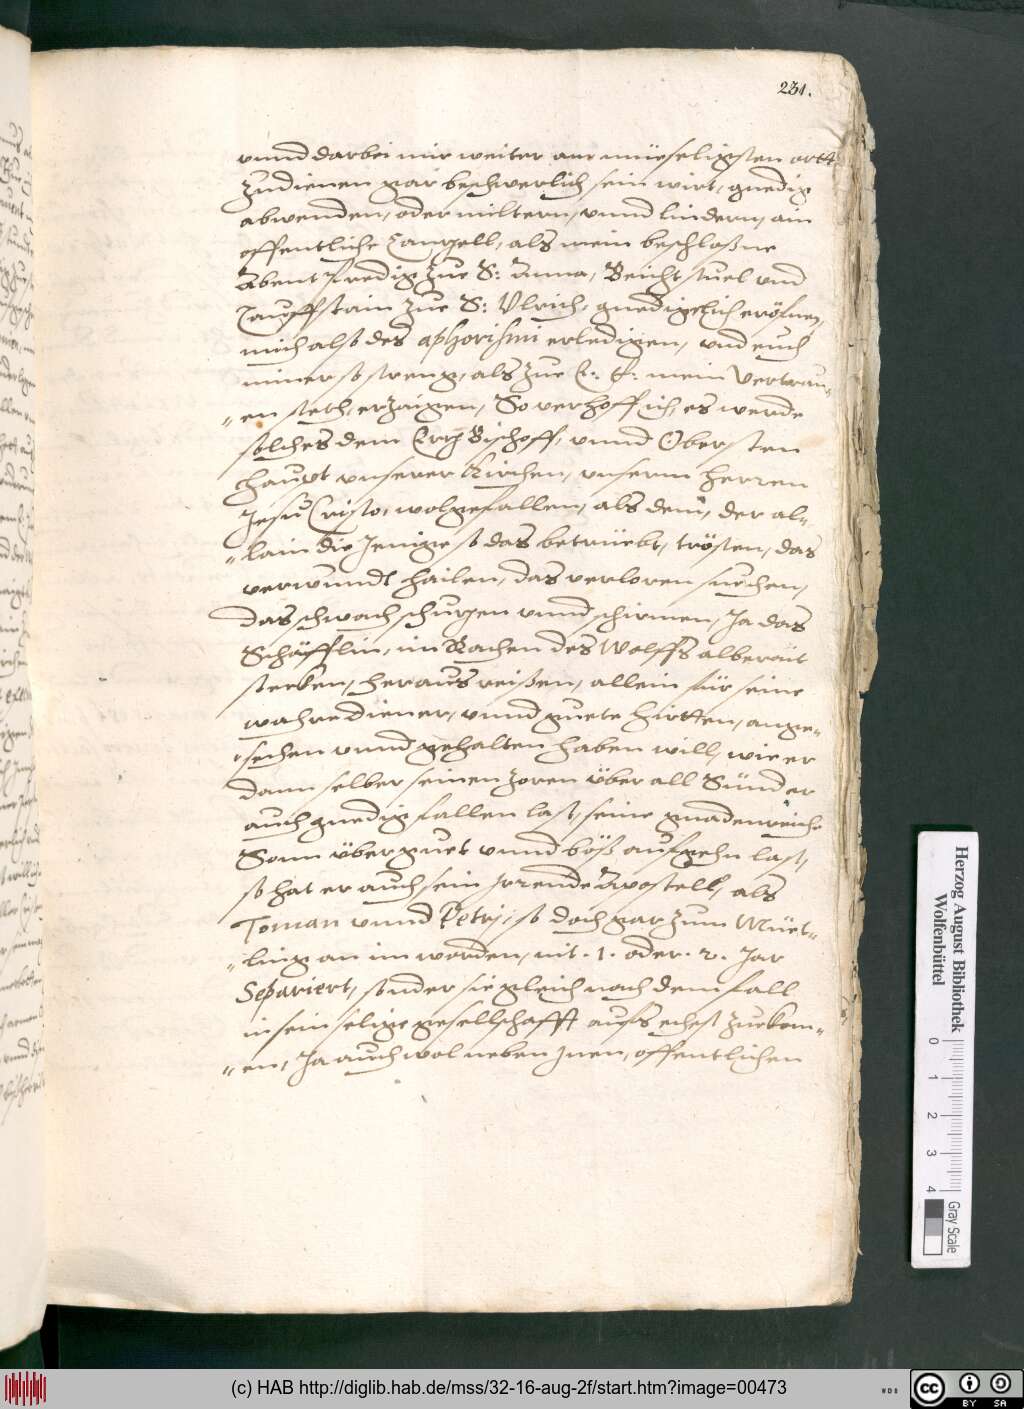 231.
vnnd darbei mir weiter am müeseligsten ortt
zudienen gar beschwerlich sein wirt, gnedig
abwenden, oder miltern, vnnd lindern, ain
offentliche Canzell, als mein beschloßne
Abent Predig zue S: Anna, Beicht stuel vnd
Tauffstain zue S: Vlrich, gnedigelich eröfnen,
mich alß des aphorismi erledigen, vnd euch
nimer so streng, als zue E: E: mein Vertrau-
en steth, erzaigen, So verhoff ich, es werde
solches dem Ertz Bischoff, vnnd Obersten
haupt vnserer Kirchen, vnserm Herren
Jesu Cristo, wolgefallen, als dem, der al-
lain die Jenige so das betrüebt, trösten, das
verwundt hailen, das verloren suechen,
das schwach schutzen vnnd schirmen, Ja das
Schäfflin, im Rachen des Wolffs alberait
stecken, heraus reißen, allein für seine
wahre diener, vnnd guete hirtten, ange-
sechen vnnd gehalten haben will, wie er
dann selber seinen Zoren über all Sünder
auch gnedig fallen last, seine gnadenreiche
Sonn über guet vnnd böß aufgehn last,
so hat er auch sein irrende Apostell, als
Toman vnnd Petrj, so doch gar zum Müet-
ling an im worden, nit .1. oder .2. Jar
Separiert, sonder sie gleich nach dem fall
in sein selige gesellschafft aufs echest zuekom-
en, Ja auch wol neben Inen, offentlichen
Herzog August Bibliothek
Wolfenbüttel
0 1 2 3 4
Gray Scale
(c) HAB http://diglib.hab.de/mss/32-16-aug-2f/start.htm?image=00473
WDB
cc BY SA